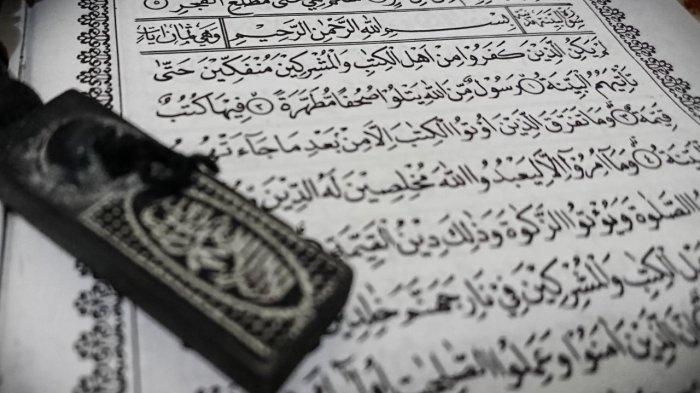 هي حتى مطلع الفجر ۝
بسم الله الرحمن الرحيم وهي ثمان آيات
لم يكن الذين كفروا من أهل الكتب والمشركين منفكين حتى
تأتيهم البينة ۝ رسول من الله يتلوا صحفا مطهرة ۝ فيها كتب
قيمة ۝ وما تفرق الذين أوتوا الكتب إلا من بعد ما جاءتهم
۝ وما أمروا إلا ليعبدوا الله مخلصين له الدين
الصلوة ويؤتوا الزكوة وذلك دين القيمة
الكتب والمشركين في نار جهنم خلدين
الذين آمنوا وعملوا الصلحت